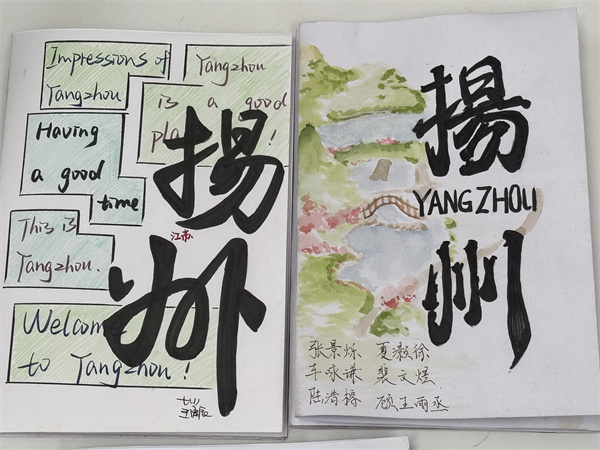 Impressions of
Yangzhou
Yangzhou
is a good
pla !
Having
a good
time
This is
Yangzhou.
Welcome
to Yangzhou!
揚
江苏
州
七(1)
揚
YANGZHOU
州
张景烁 夏灏徐
车咏谦 裴文煜
陆浩榕 顾王雨丞